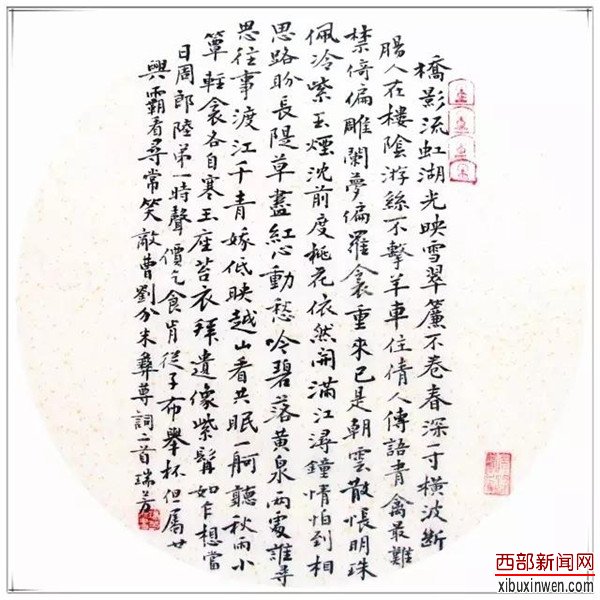 橋影流虹湖光映雪翠簾不卷春深一寸橫波斷
腸人在樓陰游絲不擊羊車住倩人傳語青禽最難
禁倚偏雕闌夢偏羅衾重來已是朝雲散悵明珠
佩冷紫玉煙沈前度桃花依然開滿江潯鐘情怕到相
思路盼長隄草盡紅心動愁吟碧落黃泉兩處誰尋
思往事渡江千青嫁低映越山看共眠一舸聽秋雨小
簟輕衾各自寒玉座苔衣拜遺像紫髯如乍想當
日周郎陸弟一時聲價乞食肯從子布舉杯但屬甘
興霸看尋常笑敵曹劉分朱彝尊詞二首瑞芳
西部新闻网
xibuxinwen.com